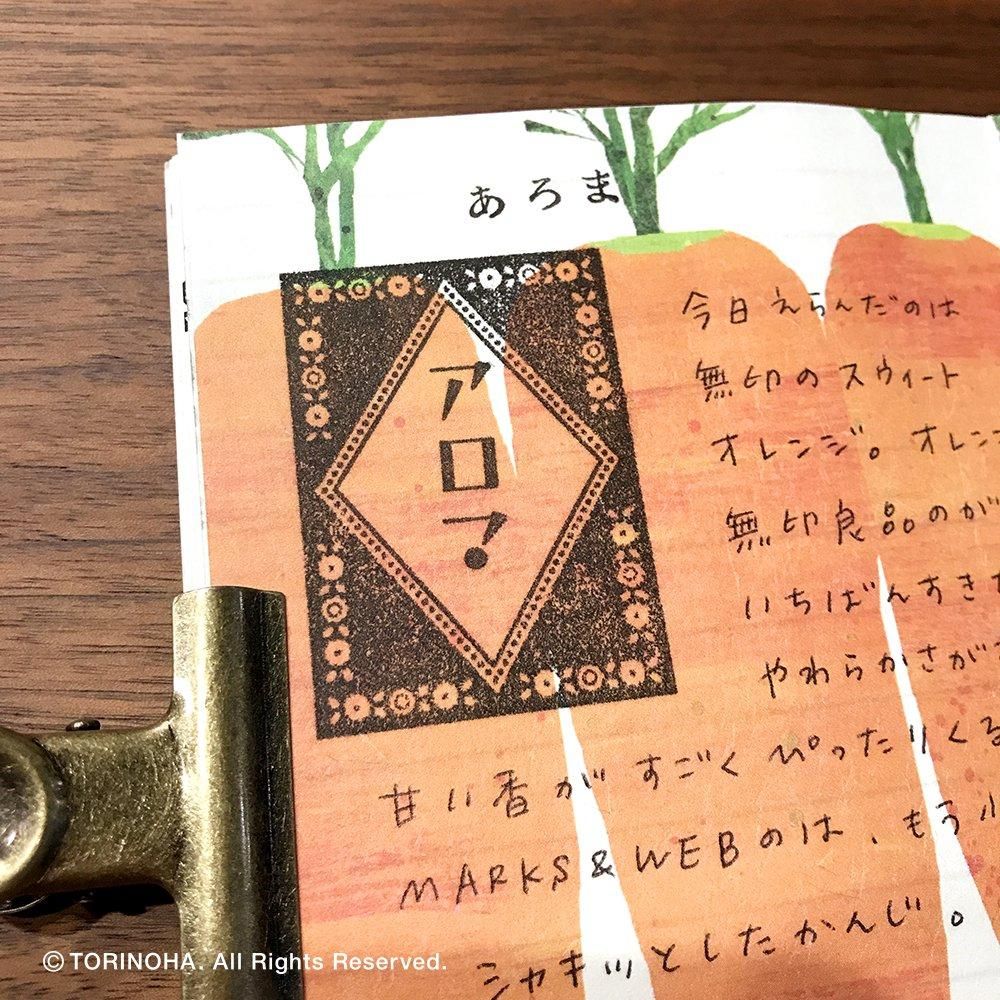 あろま
アロマ
今日えらんだのは
無印のスウィート
オレンジ。オレン
無印良品のが
いちばんすき
やわらかさが
甘い香がすごくぴったりくる
MARKS&WEBのは、もう
シャキッとしたかんじ。
©TORINOHA. All Rights Reserved.